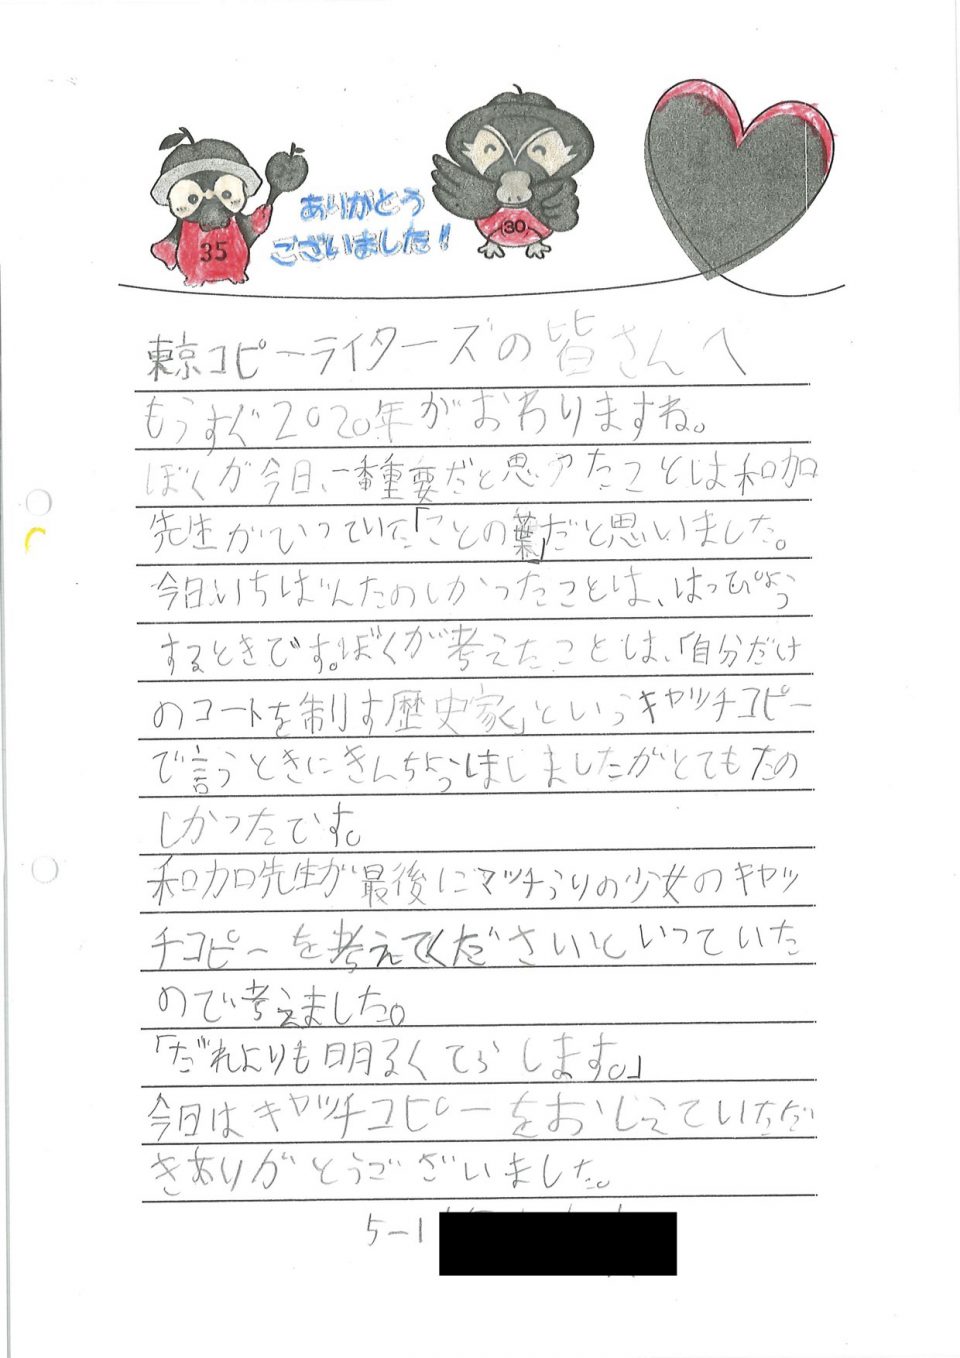 ありがとう
ございました!
35
30
東京コピーライターズの皆さんへ
もうすぐ2020年がおわりますね。
ぼくが今日、一番重要だと思ったことは和加
先生がいっていた「ことの葉」だと思いました。
今日いちばんたのしかったことは、はっぴょう
するときです。ぼくが考えたことは、「自分だけ
のコートを制す歴史家」というキャッチコピー
で言うときにきんちょうしましたがとてもたの
しかったです。
和加先生が最後にマッチうりの少女のキャッ
チコピーを考えてくださいといっていた
ので考えました。
「だれよりも明るくてらします。」
今日はキャッチコピーをおしえていただ
きありがとうございました。
5-1